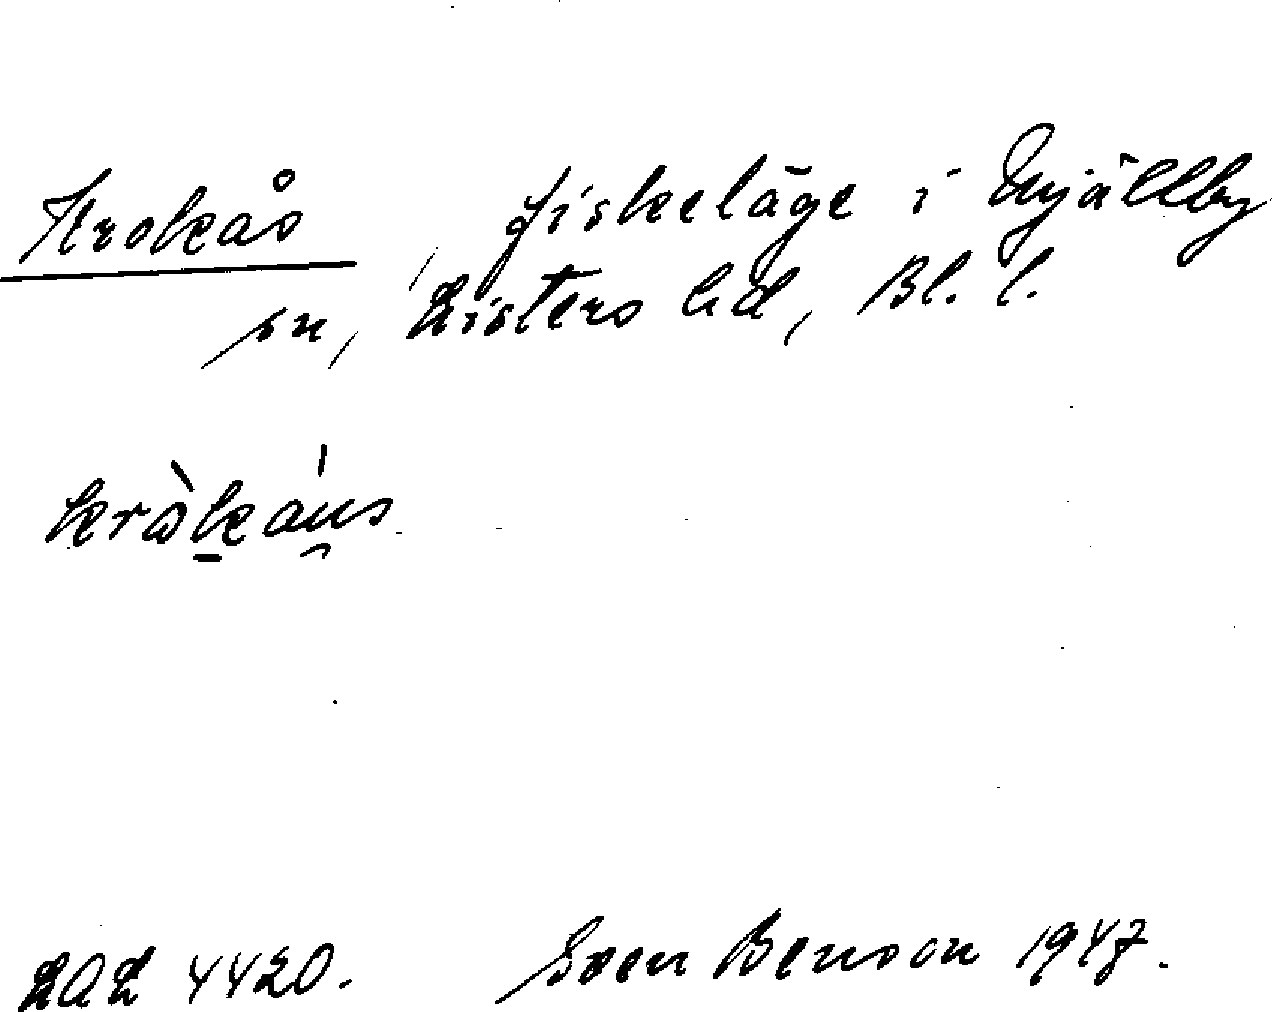 Krokås, fiskeläge i Mjällby
sn, Listers hd, Bl. l.
krὰ̀káu̯s
LAL 4420. Sven Benson 1947.